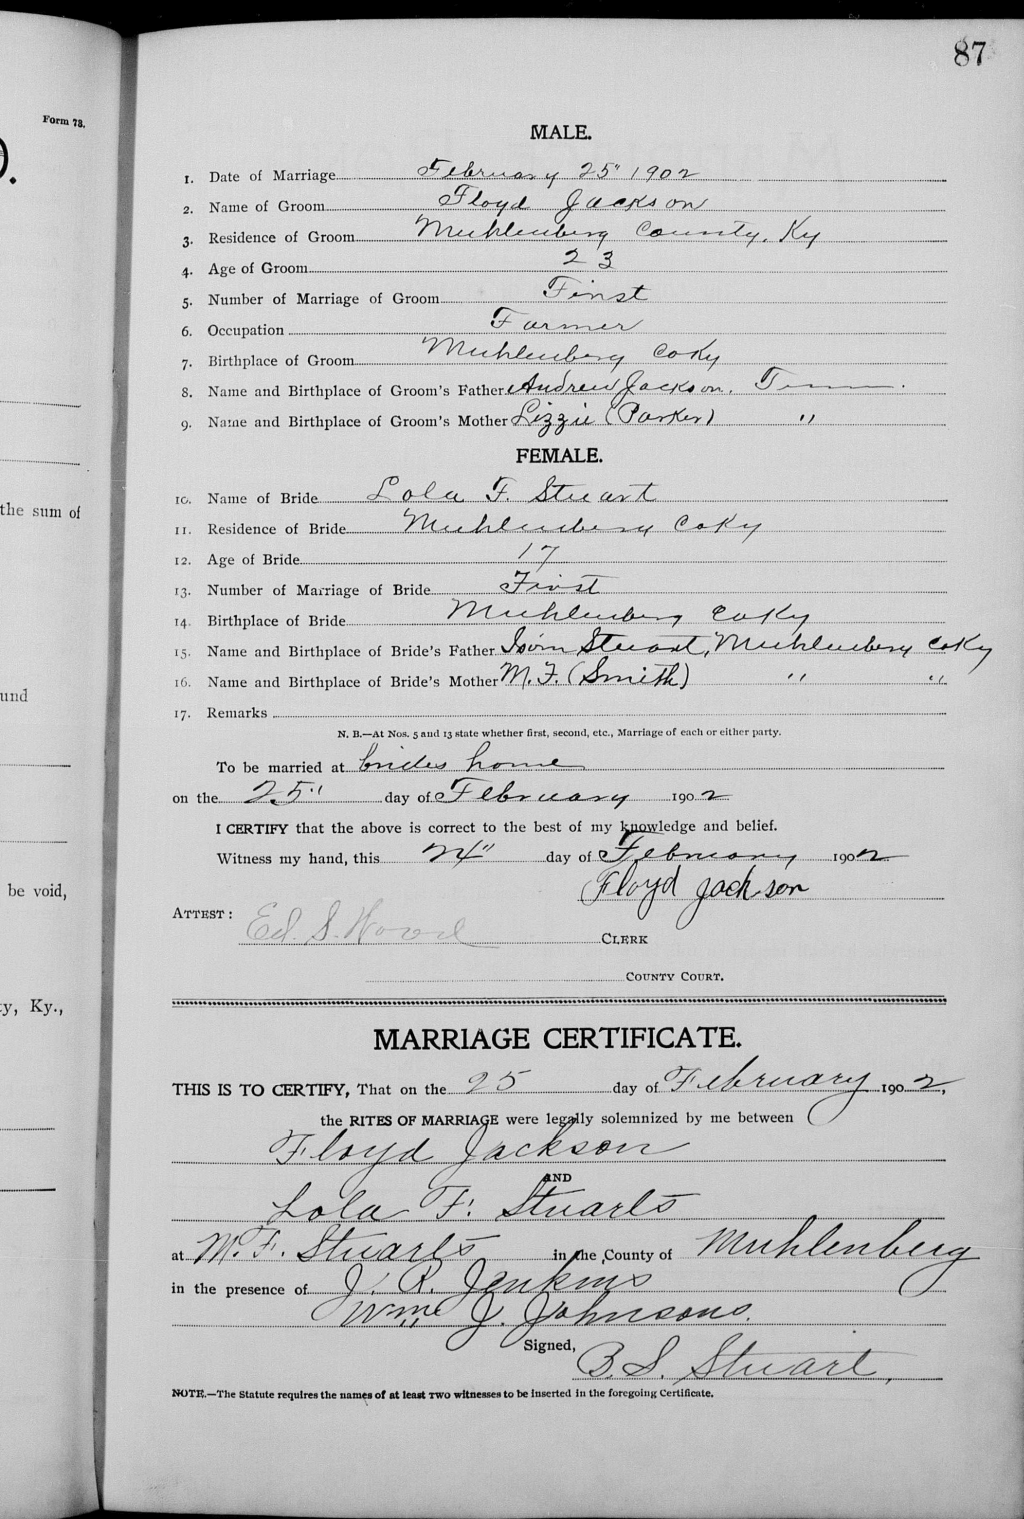 87
Form 78.
).
MALE.
1. Date of Marriage February 25" 1902
2. Name of Groom Floyd Jackson
3. Residence of Groom Muhlenberg County, Ky
4. Age of Groom 23
5. Number of Marriage of Groom First
6. Occupation Farmer
7. Birthplace of Groom Muhlenberg Co Ky
8. Name and Birthplace of Groom's Father Andrew Jackson. Tenn.
9. Name and Birthplace of Groom's Mother Lizzie (Parker) "
FEMALE.
10. Name of Bride Lola F. Stuart
the sum of
11. Residence of Bride Muhlenberg Co Ky
12. Age of Bride 17
13. Number of Marriage of Bride First
14. Birthplace of Bride Muhlenberg Co Ky
15. Name and Birthplace of Bride's Father Stuart, Muhlenberg Co Ky
16. Name and Birthplace of Bride's Mother M. F. (Smith) " "
und
17. Remarks
N. B.—At Nos. 5 and 13 state whether first, second, etc., Marriage of each or either party.
To be married at brides home
on the 25" day of February 1902
I CERTIFY that the above is correct to the best of my knowledge and belief.
Witness my hand, this 24" day of February 1902
be void,
Floyd Jackson
ATTEST: Ed. S. Wood CLERK
COUNTY COURT.
ty, Ky.,
MARRIAGE CERTIFICATE.
THIS IS TO CERTIFY, That on the 25 day of February 1902,
the RITES OF MARRIAGE were legally solemnized by me between
Floyd Jackson
AND
Lola F. Stuarts
at M. F. Stuarts in the County of Muhlenberg
in the presence of J. R. Jenkins
Wm J. Johnsons.
Signed, B. S. Stuart,
NOTE.—The Statute requires the names of at least TWO witnesses to be inserted in the foregoing Certificate.